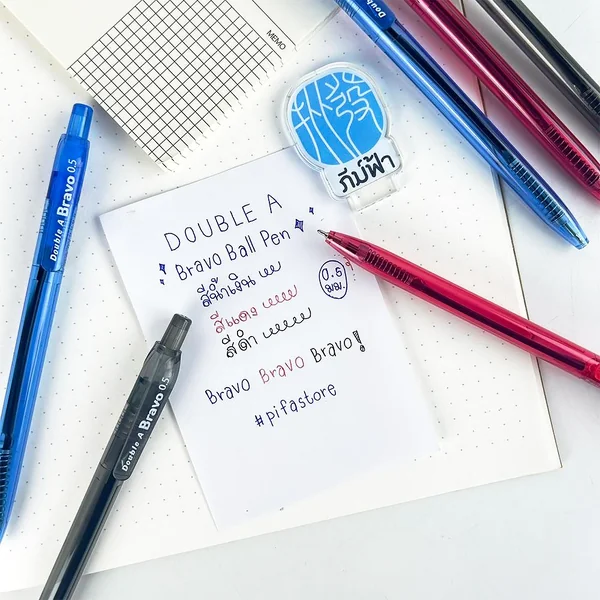 MEMO
Double A
ภีม์ฟ้า
DOUBLE A
Bravo Ball Pen
สีน้ำเงิน
0.5 มม.
สีแดง
สีดำ
Bravo Bravo Bravo!
#pifastore
Double A Bravo 0.5
Double A Bravo 0.5